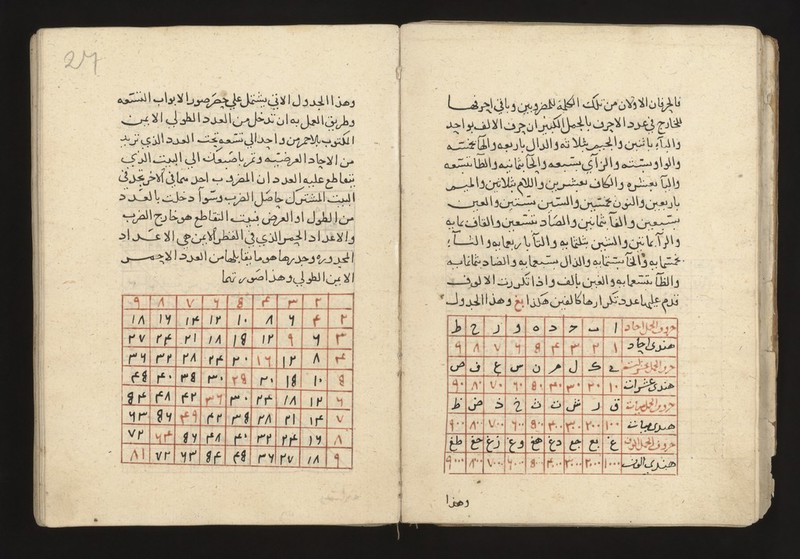 فالحرفان الاولان من تلك الكلمة للمضروبين وباقي احرفها
للخارج في عدد الاحرف بالجمل الكبير ان حرف الالف بواحد
والباء باثنين والجيم بثلاثة والدال باربعة والهاء بخمسة
والواو بستة والزاي بسبعة والحاء بثمانية والطاء بتسعة
والياء بعشرة والكاف بعشرين واللام بثلاثين والميم
باربعين والنون بخمسين والسين بستين والعين
بسبعين والفاء بثمانين والصاد بتسعين والقاف بمايه
والراء بمايتين والشين بثلثمايه والتاء باربعمايه والثاء
بخمسمايه والخاء بستمايه والذال بسبعمايه والضاد بثمانمايه
والظاء بتسعمايه والغين بالف واذا تكررت الالوف
قدم عليها عدد تكرارها كالفين هكذا بغ وهذا الجدول
حروف الجمل احاد ا ب ج د ه و ز ح ط
هندي احاد ١ ٢ ٣ ٤ ٥ ٦ ٧ ٨ ٩
حروف الجمل عشرات ي ك ل م ن س ع ف ص
هندي عشرات ١٠ ٢٠ ٣٠ ٤٠ ٥٠ ٦٠ ٧٠ ٨٠ ٩٠
حروف الجمل ميات ق ر ش ت ث خ ذ ض ظ
هندي ميات ١٠٠ ٢٠٠ ٣٠٠ ٤٠٠ ٥٠٠ ٦٠٠ ٧٠٠ ٨٠٠ ٩٠٠
حروف الجمل الوف غ بغ جغ دغ هغ وغ زغ حغ طغ
هندي الوف ١٠٠٠ ٢٠٠٠ ٣٠٠٠ ٤٠٠٠ ٥٠٠٠ ٦٠٠٠ ٧٠٠٠ ٨٠٠٠ ٩٠٠٠
وهذا
27
وهذا الجدول الاتي يشتمل على حصر صور الابواب التسعه
وطريق العمل به ان تدخل من العدد الطولي الايمن
المكتوب بالاحمر من واحد الى تسعه تحت العدد الذي تريد
من الاحاد العرضيه وتمر باصبعك الى البيت الذي
يتقاطع عليه العددان المضروب احدهما في الاخر تجد في
البيت المشترك حاصل الضرب وسواء دخلت بالعدد
من الطول او العرض فبيت التقاطع هو خارج الضرب
والاعداد الحمر الذي في القطر الايمن هي الاعداد
المجذوره وجذرها هو ما يقابلها من العدد الاحمر
الايمن الطولي وهذا صورتها
٢ ٣ ٤ ٥ ٦ ٧ ٨ ٩
٢ ٤ ٦ ٨ ١٠ ١٢ ١٤ ١٦ ١٨
٣ ٦ ٩ ١٢ ١٥ ١٨ ٢١ ٢٤ ٢٧
٤ ٨ ١٢ ١٦ ٢٠ ٢٤ ٢٨ ٣٢ ٣٦
٥ ١٠ ١٥ ٢٠ ٢٥ ٣٠ ٣٥ ٤٠ ٤٥
٦ ١٢ ١٨ ٢٤ ٣٠ ٣٦ ٤٢ ٤٨ ٥٤
٧ ١٤ ٢١ ٢٨ ٣٥ ٤٢ ٤٩ ٥٦ ٦٣
٨ ١٦ ٢٤ ٣٢ ٤٠ ٤٨ ٥٦ ٦٤ ٧٢
٩ ١٨ ٢٧ ٣٦ ٤٥ ٥٤ ٦٣ ٧٢ ٨١